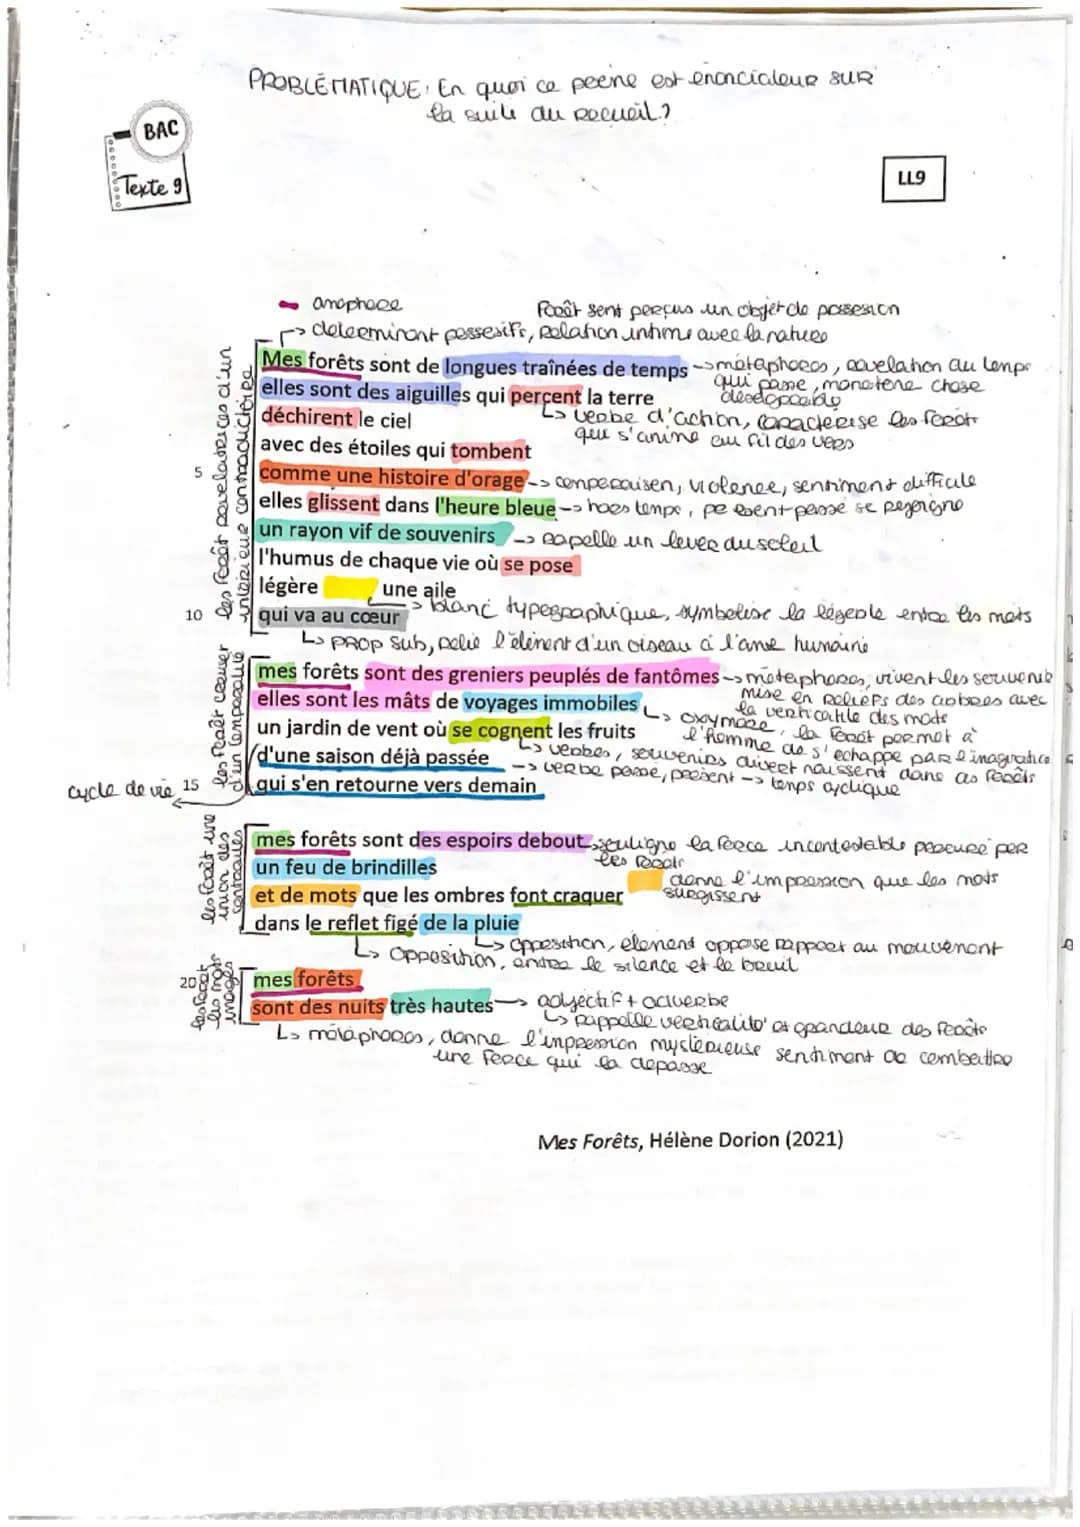 PROBLÉMATIQUE : En quoi ce poème est énonciateur sur
la suite du recueil ?
BAC
Texte 9
LL9
anaphore
Forêt sont perçus un objet de possesion
-> determinant possesifs, relation intime avec la nature
Mes forêts sont de longues traînées de temps -> métaphores, revelation au temps
qui passe, monotone chose
elles sont des aiguilles qui percent la terre
-> verbe d'action, caractérise les forêt
déchirent le ciel
qui s'anime au fil des vers
avec des étoiles qui tombent
5 comme une histoire d'orage -> comparaison, violence, sentiment difficile
elles glissent dans l'heure bleue -> hors temps, présent passé se rejoigne
un rayon vif de souvenirs -> rapelle un levée du soleil
l'humus de chaque vie où se pose
légère une aile
-> blanc typographique, symbolise la légerte entre les mots
10 qui va au cœur
-> PROP sub, relie l'élément d'un oiseau à l'ame humaine
les forêt revelatrices d'un
interieur contradictoire
mes forêts sont des greniers peuplés de fantômes -> métaphores, vivent les souvenir
mise en reliefs des arbres avec
elles sont les mâts de voyages immobiles
la verticalité des mots
-> oxymore, la forêt permet à
un jardin de vent où se cognent les fruits
l'homme de s'échappe par l'imagination
-> verbes, souvenirs
d'une saison déjà passée
-> verbe passé, présent -> temps cyclique
15 qui s'en retourne vers demain
cycle de vie
mes forêts sont des espoirs debout -> souligne la force incontestable procuré par
les forêts
un feu de brindilles
donne l'impression que les mots
surgissent
et de mots que les ombres font craquer
dans le reflet figé de la pluie
-> opposition, element oppose rapport au mouvement
-> opposition, entre le silence et le bruit
les forêt une
union des
contraires
20 mes forêts
sont des nuits très hautes -> adjectif + adverbe
-> rappelle verticalité et grandeur des forêts
-> métaphores, donne l'impression mystérieuse sentiment de combattre
une force qui la depasse
Mes Forêts, Hélène Dorion (2021)